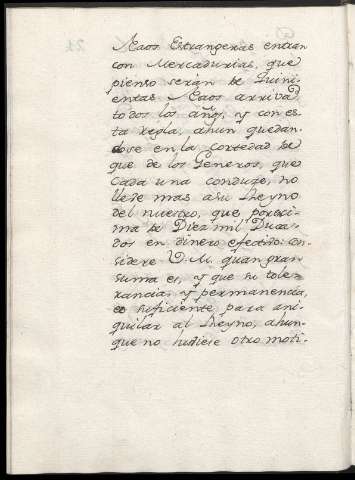 Naos Estrangeras entran
con Mercadurias, que
pienso serán de Quini-
entas Naos arriva
todos los años, y con es-
ta regla, ahun quedan-
dose en la cortedad de
que de los Generos, que
Cada una conduze, no
lleve mas a su Reyno
del nuestro, que
ma de Diez mil Duca-
dos en dinero efectivo: con-
sidere V. M. quan gran
suma es, y que su tole-
rancia, y permanencia,
es suficiente para ani-
quilar al Reyno, ahun-
que no hubiese otro moti-